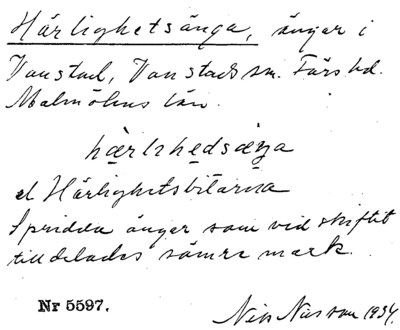 Härlighetsänga, ängar i
Vanstad, Vanstads sn. Färs hd.
Malmöhus län.
hærlshedsæŋa
el Härlighetsbitarna
Spridda ängar som vid skiftet
tilldelades sämre mark.
Nr 5597.
Nils Nilsson 1934.